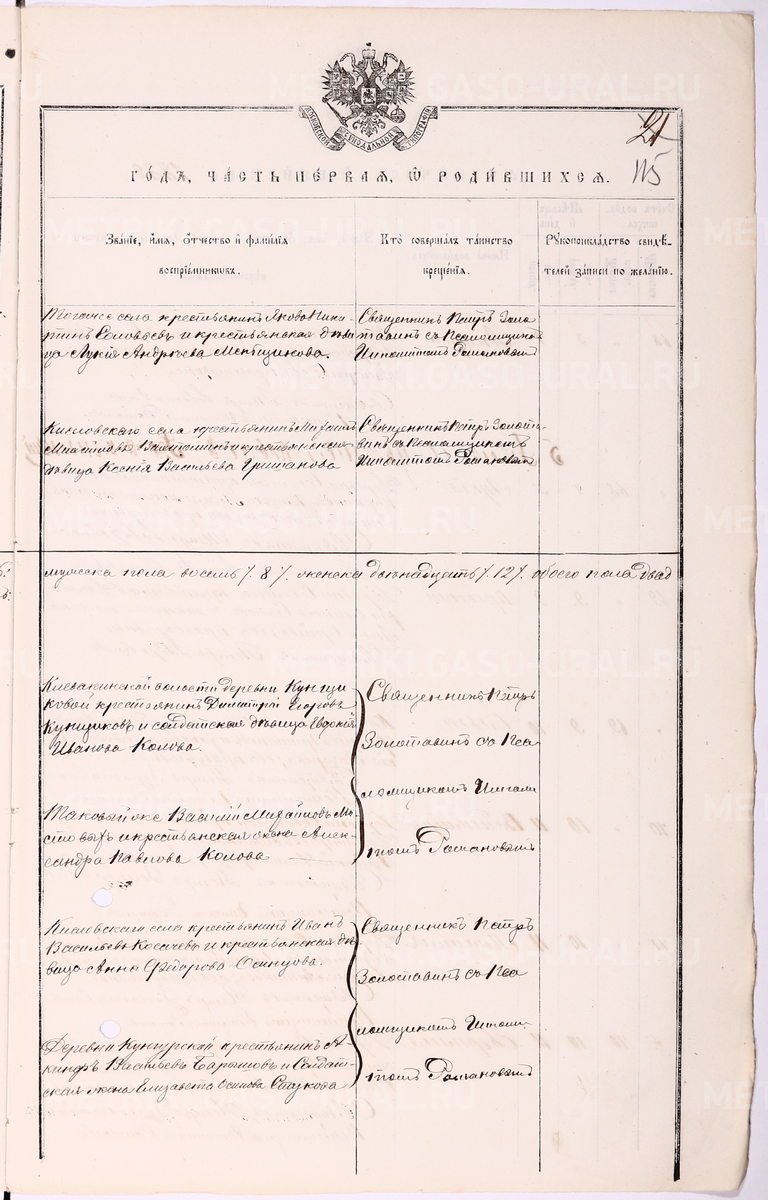 МОСКОВСКОЙ СѴНОДАЛЬНОЙ ТИПОГРАФІИ
21
115
ГОДЪ, ЧАСТЬ ПЕРВАЯ, Ѡ РОДИВШИХСЯ.
Званіе, имя, отчество и фамилія
воспріемниковъ.
Кто совершалъ таинство
крещенія.
Рукоприкладство свидѣ-
телей записи по желанію.
Тогоже села крестьянинъ Яковъ Ники-
тинъ Соловьевъ и крестьянская дѣви
ца Лукія Андреева Меньщикова.
Священникъ Петръ Золо
тавинъ съ Псаломщикомъ
Ипполитомъ Романовымъ
Кисловскаго села крестьянинъ Михаилъ
крестьянская
дѣвица Ксенія Васильева Гришанова
Священникъ Петръ Золота-
винъ съ Псаломщикомъ
Ипполитомъ Романовымъ
мужеска пола восемь /. 8 /. женска двѣнадцать /. 12 /. обоего пола двад
Клевакинской волости деревни Кунщи
ковой крестьянинъ Димитрій Егоровъ
Кунщиковъ и солдатская дѣвица Евдокія
Иванова Колова.
Священникъ Петръ
Золотавинъ съ Пса
ломщикомъ Иппали
томъ Романовымъ
Таковый же Василій Михайловъ Мо-
стовыхъ и крестьянская жена Алек-
сандра Павлова Колова
Кисловскаго села крестьянинъ Иванъ
Васильевъ Косачевъ и крестьянская дѣ
вица Анна Федорова Осинцова.
Священникъ Петръ
Золотавинъ съ Пса
ломщикомъ Иппали-
томъ Романовымъ
Деревни крестьянинъ А-
кинфъ Васильевъ и Солдат-
ская жена Елизавета Осипова